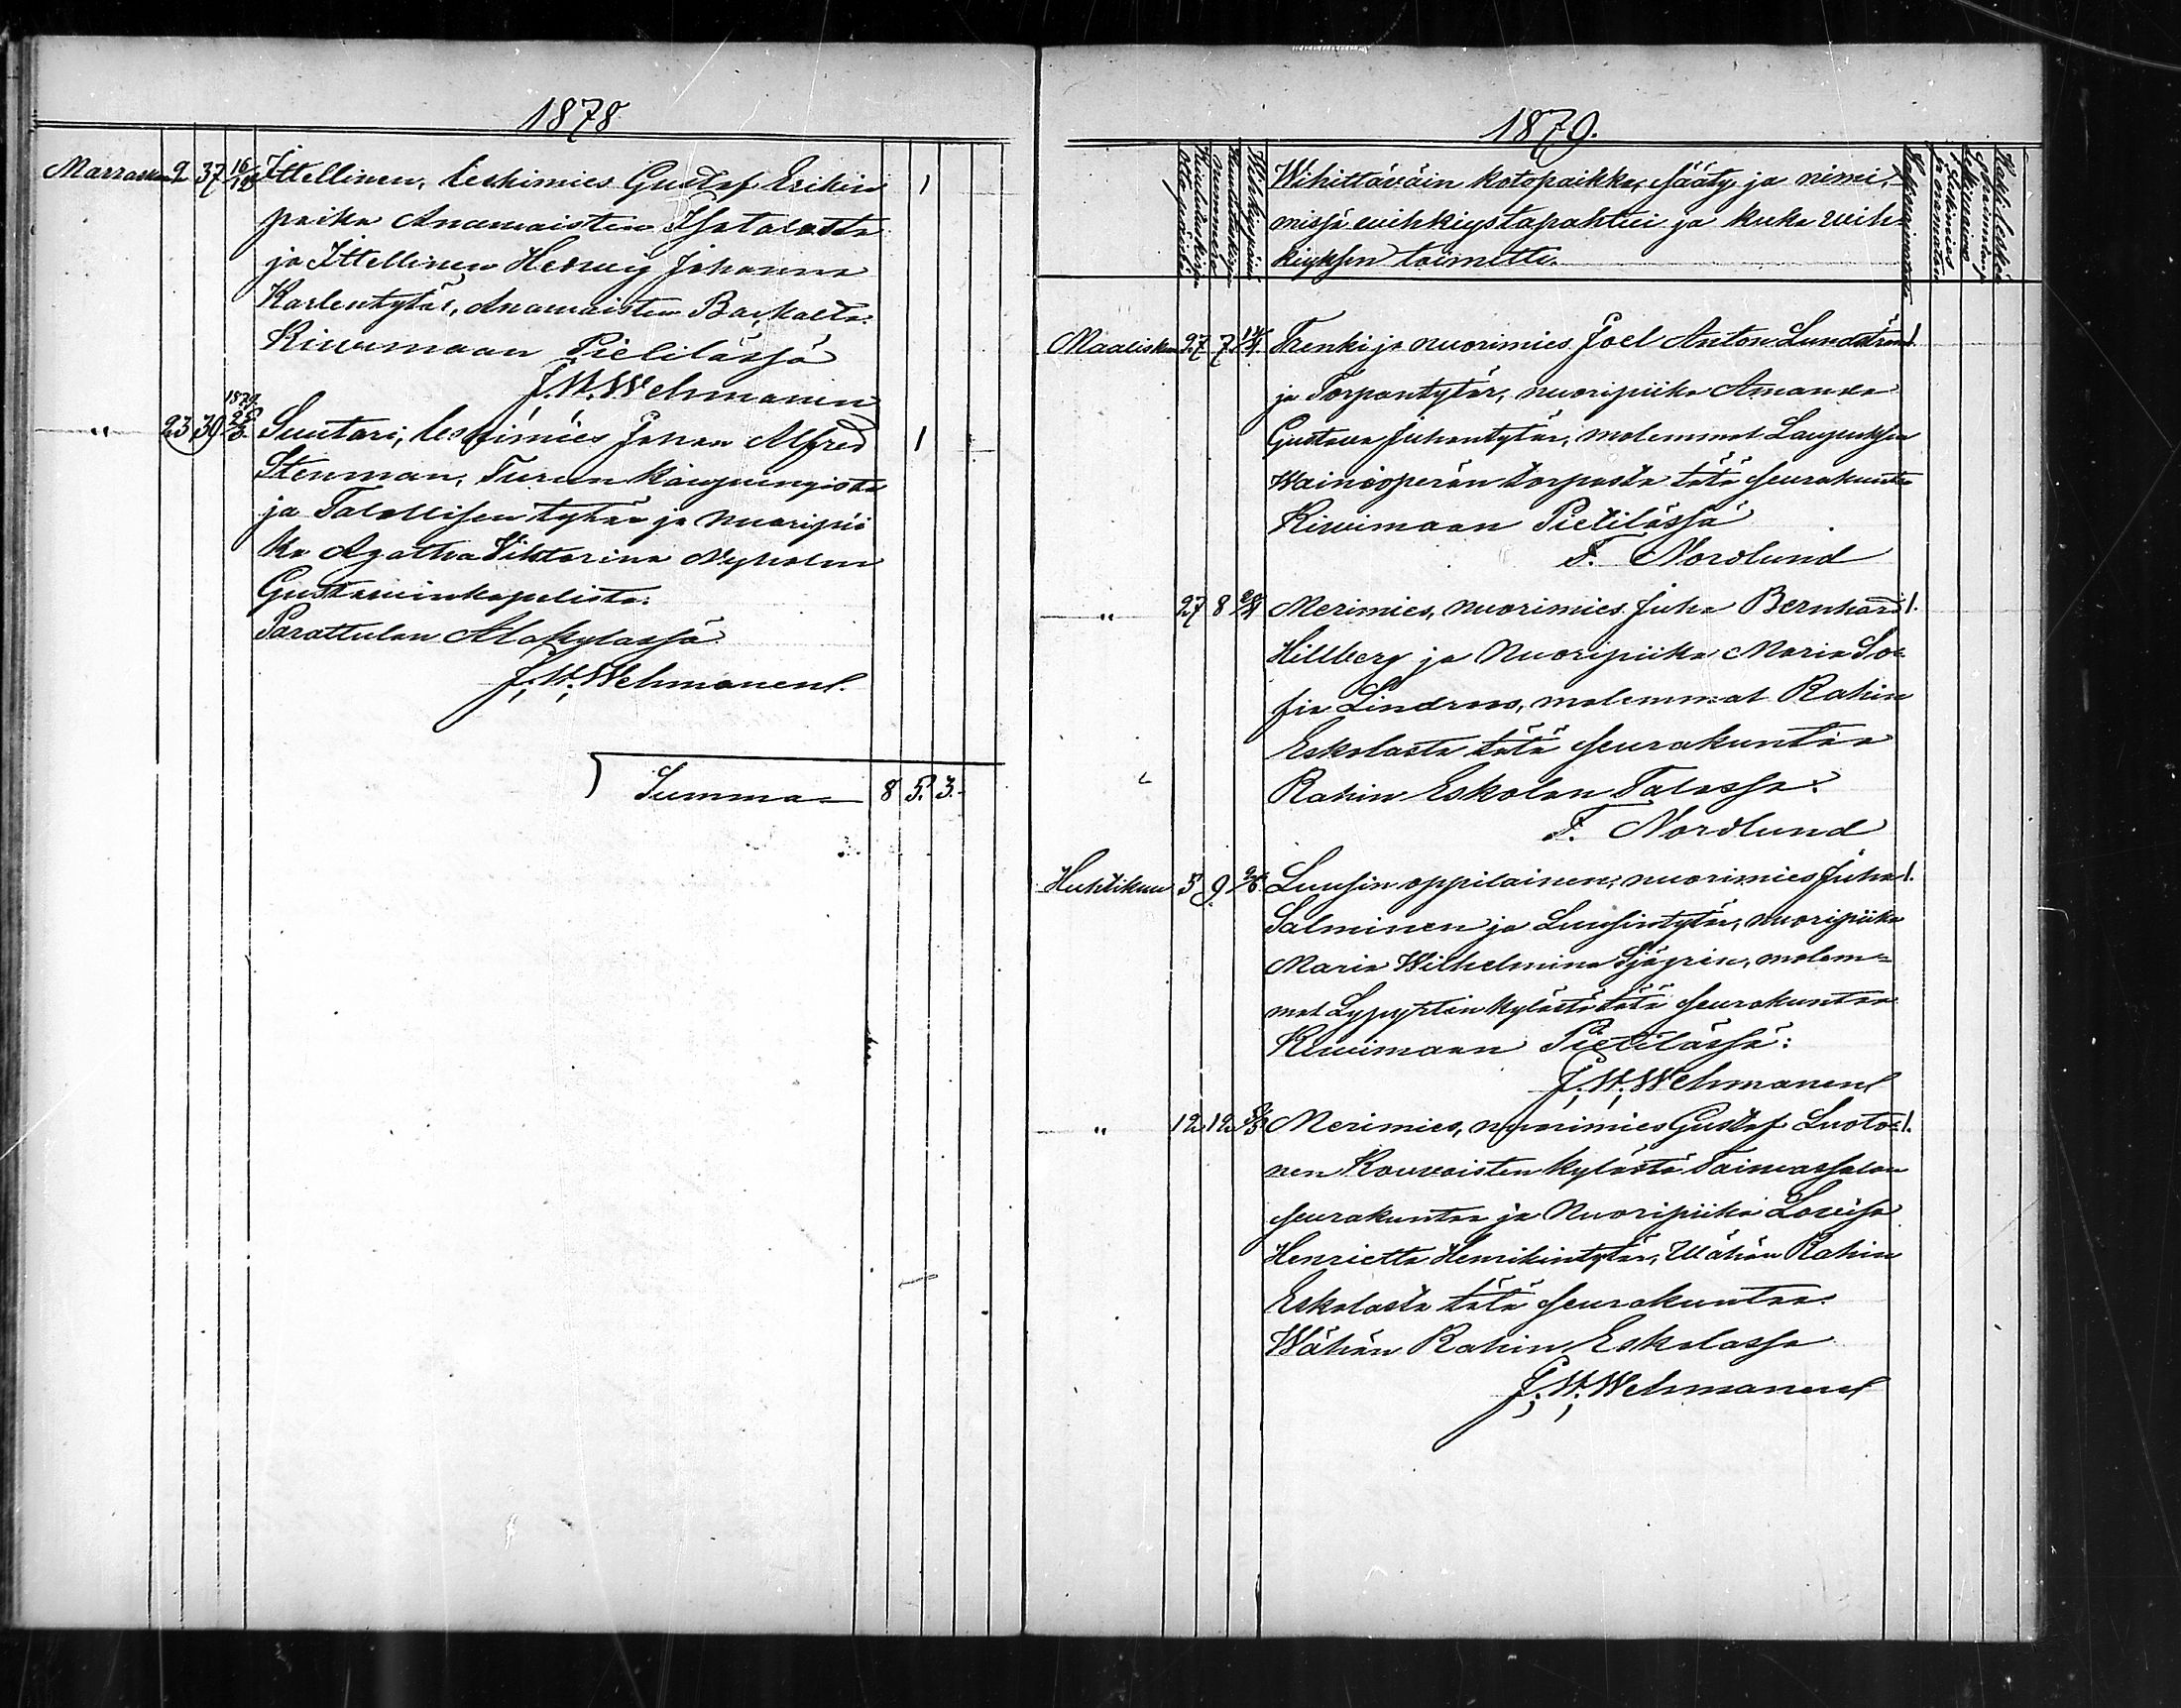 1878
Marraskuu 2 37 16/12 Ittellinen, leskimies Gustaf Erikin 1
poika Anawaisten Isotalosta
ja Ittellinen Hedwig Johanna
Karlentytär, Anawaisten Backalta.
Kiwimaan Pietilässä
J. W. Wehmanen
1879.
" 23 39 25/3. Suutari, leskimies Johan Alfred 1
Stenman, Turun kaupungista
ja Talollisen tytär ja nuoripii
ka Agatha Viktorina Nyholm
Gustawinkapelista.
Parattulan Alakylässä
J. W. Wehmanen.
Summa 8 5. 3.
1879.
Wihittäwäin kotopaikka, sääty ja nimi,
missä wihkiys tapahtui ja kuka wih=
kiyksen toimitti.
Maaliskuu 27 7 14/4. Trenki ja nuorimies Joel Anton Lundström 1.
ja Torpantytär, nuoripiika Amanda
Gustava Juhantytär, molemmat Laupuksen
Wainionperän torpasta tätä seurakuntaa
Kiwimaan Pietilässä
F. Nordlund
" 27 8 Merimies, nuorimies Juha Bernhard 1.
Hillberg ja Nuoripiika Maria So=
fia Lindroos, molemmat Rahin
Eskolasta tätä seurakuntaa
Rahin Eskolan Talossa.
F. Nordlund
Huhtikuu 5 9. Luusin oppilainen, nuorimies Juha 1.
Salminen ja Luusintytär, nuoripiika
Maria Wilhelmina Sjögrén, molem=
mat Lypyrtin kylästä tätä seurakuntaa
Kiwimaan Pietilässä:
J. W. Wehmanen
" 12 12 Merimies, nuorimies Gustaf Luoto= 1.
nen Kouvoisten kylästä Taiwassalon
seurakuntaa ja Nuoripiika Lovisa
Henrietta Henrikintytär, Wähän Rahin
Eskolasta tätä seurakuntaa.
Wähän Rahin Eskolassa
J. W. Wehmanen